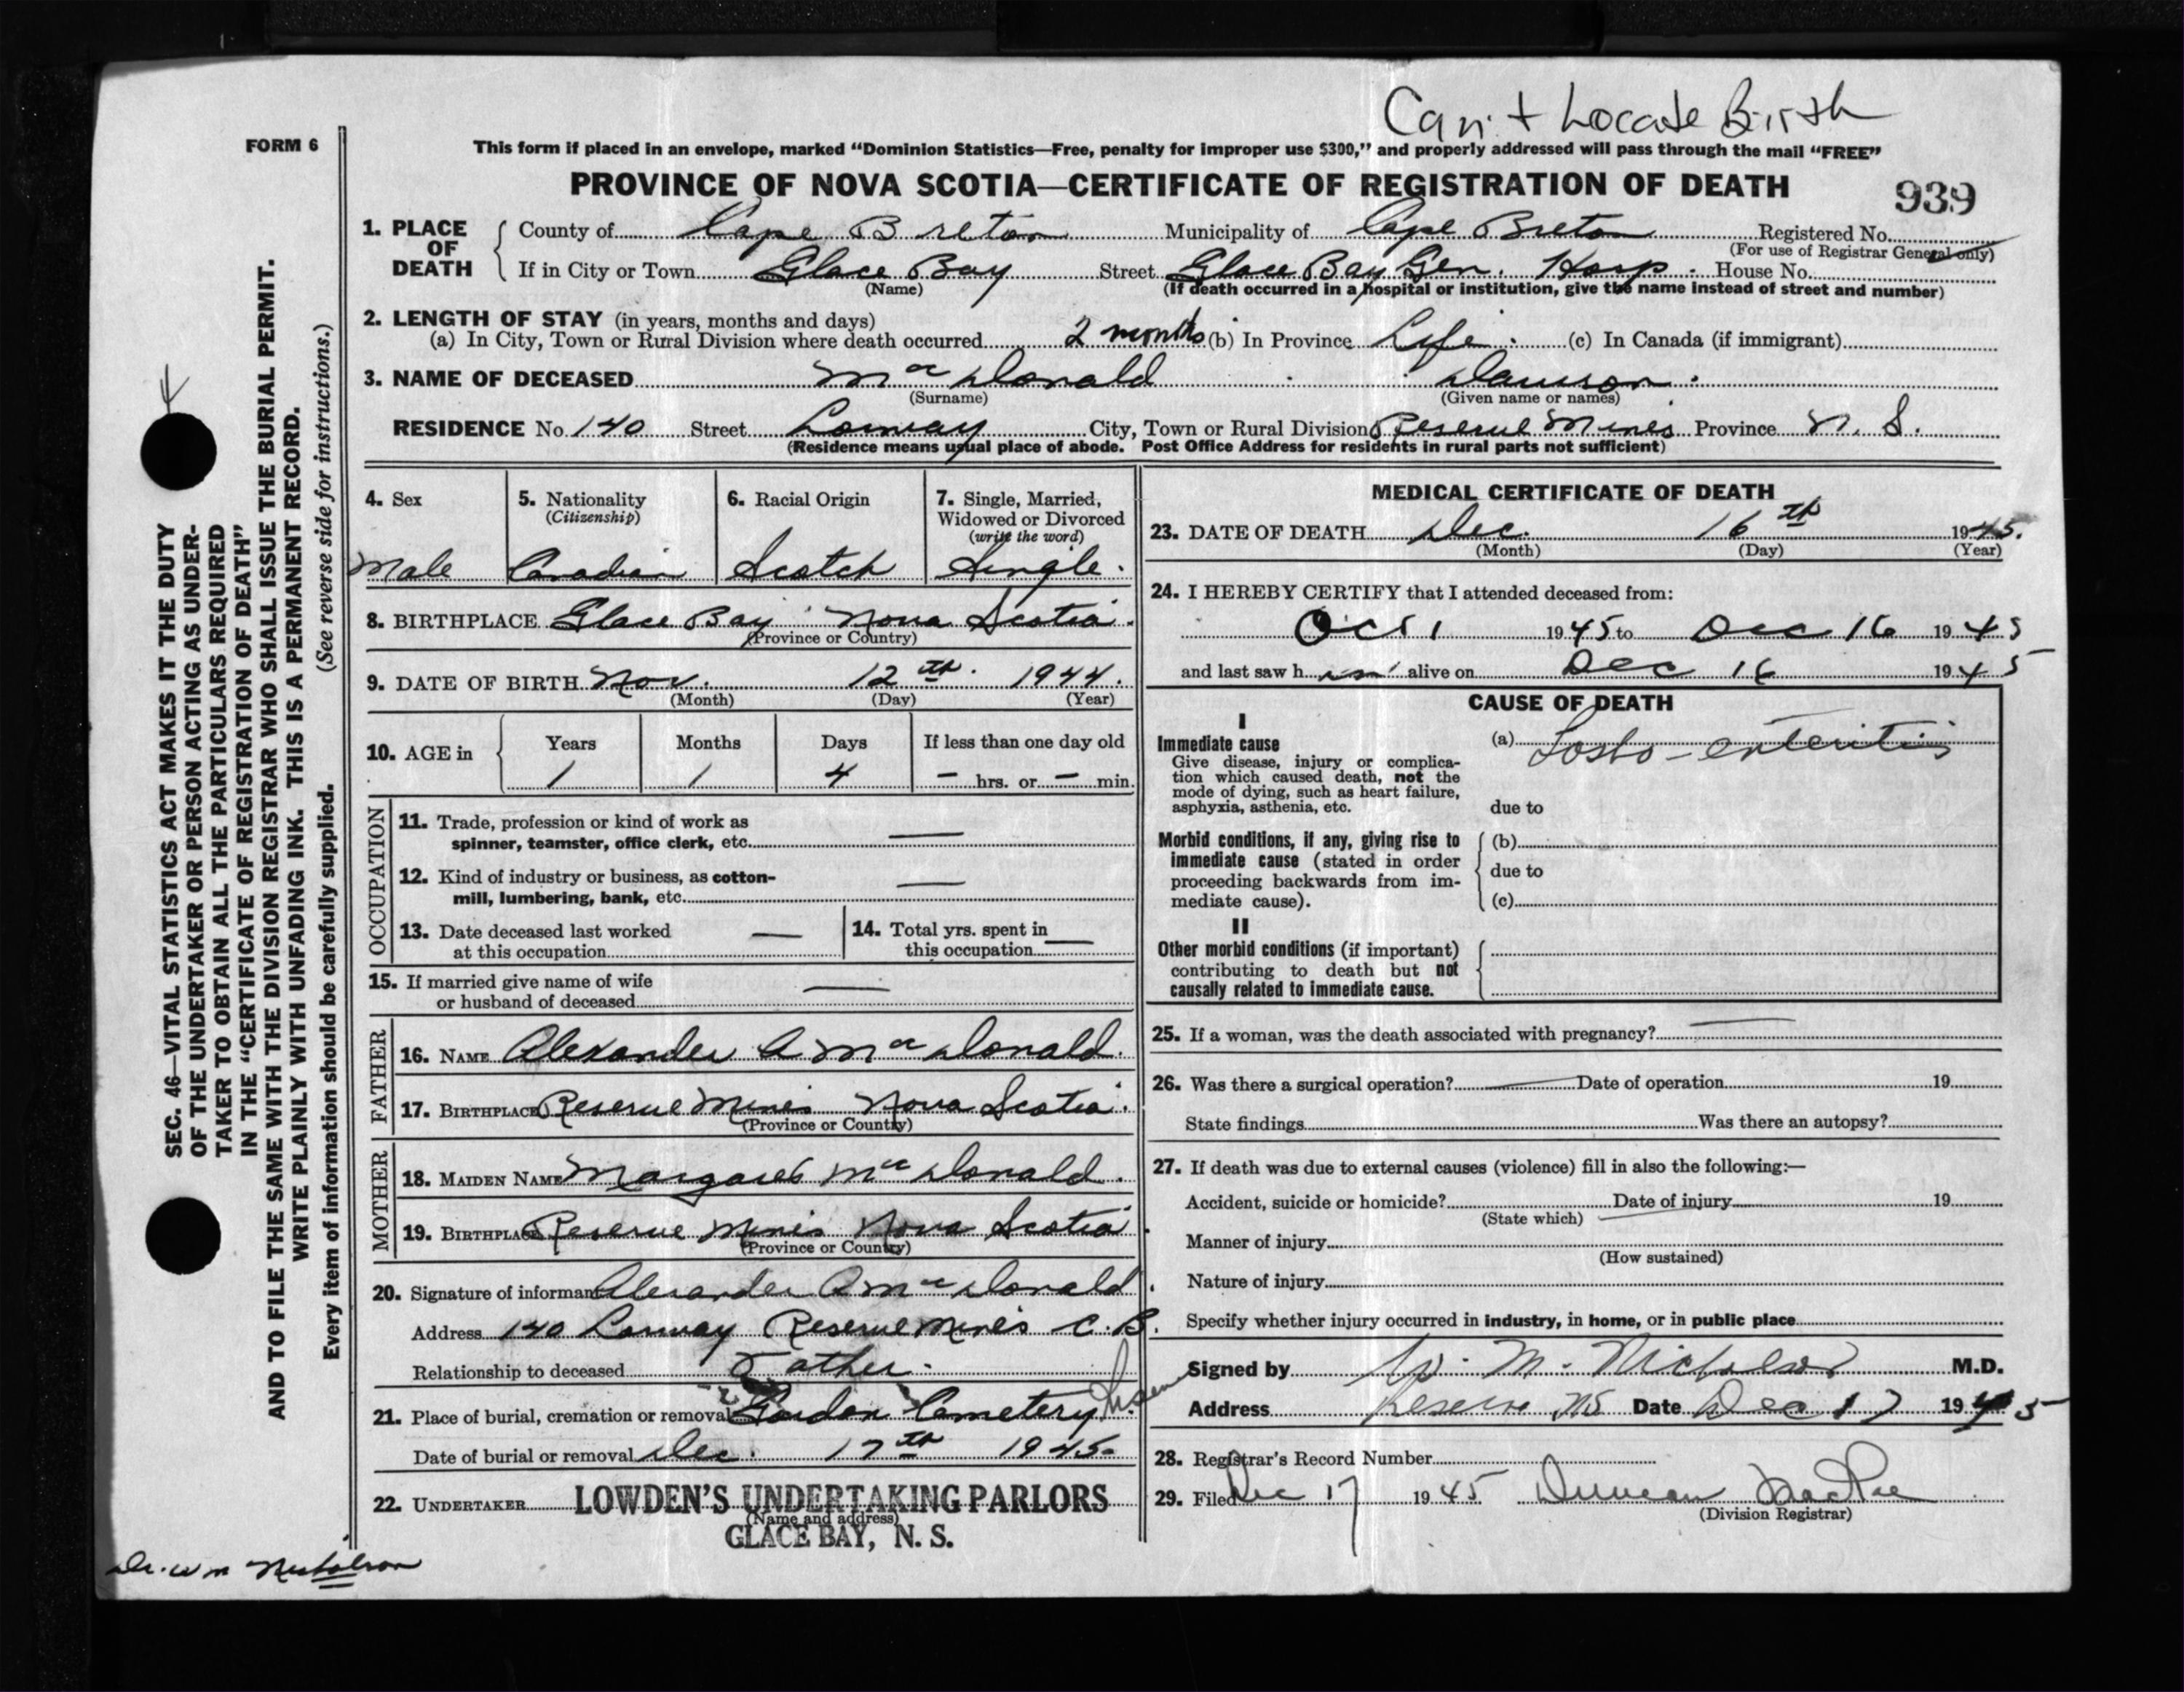 Can't Locate Birth
FORM 6
This form if placed in an envelope, marked "Dominion Statistics—Free, penalty for improper use $300," and properly addressed will pass through the mail "FREE"
PROVINCE OF NOVA SCOTIA—CERTIFICATE OF REGISTRATION OF DEATH
939
1. PLACE OF DEATH
County of Cape Breton Municipality of Cape Breton Registered No.
(For use of Registrar General only)
If in City or Town Glace Bay Street Glace Bay Gen. Hosp. House No.
(Name) (If death occurred in a hospital or institution, give the name instead of street and number)
2. LENGTH OF STAY (in years, months and days)
(a) In City, Town or Rural Division where death occurred 2 months (b) In Province Life. (c) In Canada (if immigrant)
3. NAME OF DECEASED Mac Donald Dawson.
(Surname) (Given name or names)
RESIDENCE No. 140 Street Lorway City, Town or Rural Division Reserve Mines Province N. S.
(Residence means usual place of abode. Post Office Address for residents in rural parts not sufficient)
4. Sex
Male
5. Nationality
(Citizenship)
Canadian
6. Racial Origin
Scotch
7. Single, Married,
Widowed or Divorced
(write the word)
Single.
8. BIRTHPLACE Glace Bay Nova Scotia.
(Province or Country)
9. DATE OF BIRTH Nov. 12th. 1944.
(Month) (Day) (Year)
10. AGE in
Years Months Days If less than one day old
1 1 4 — hrs. or — min.
OCCUPATION
11. Trade, profession or kind of work as
spinner, teamster, office clerk, etc. —
12. Kind of industry or business, as cotton-
mill, lumbering, bank, etc. —
13. Date deceased last worked
at this occupation —
14. Total yrs. spent in
this occupation —
15. If married give name of wife
or husband of deceased —
FATHER
16. NAME Alexander A Mac Donald.
17. BIRTHPLACE Reserve Mines Nova Scotia.
(Province or Country)
MOTHER
18. MAIDEN NAME Margaret Mac Donald.
19. BIRTHPLACE Reserve Mines Nova Scotia
(Province or Country)
20. Signature of informant Alexander A Mac Donald.
Address 140 Lorway Reserve Mines C. B.
Relationship to deceased Father.
21. Place of burial, cremation or removal Gordon Cemetery
Date of burial or removal Dec. 17th 1945
22. UNDERTAKER LOWDEN'S UNDERTAKING PARLORS
(Name and address)
GLACE BAY, N. S.
MEDICAL CERTIFICATE OF DEATH
23. DATE OF DEATH Dec. 16th 1945.
(Month) (Day) (Year)
24. I HEREBY CERTIFY that I attended deceased from:
Oct 1 1945 to Dec 16 1945
and last saw him alive on Dec 16 1945
CAUSE OF DEATH
I
Immediate cause
Give disease, injury or complica-
tion which caused death, not the
mode of dying, such as heart failure,
asphyxia, asthenia, etc.
(a) Gastro-enteritis
due to
Morbid conditions, if any, giving rise to
immediate cause (stated in order
proceeding backwards from im-
mediate cause).
(b)
due to
(c)
II
Other morbid conditions (if important)
contributing to death but not
causally related to immediate cause.
25. If a woman, was the death associated with pregnancy? —
26. Was there a surgical operation? — Date of operation 19
State findings Was there an autopsy?
27. If death was due to external causes (violence) fill in also the following:—
Accident, suicide or homicide? Date of injury 19
(State which)
Manner of injury
(How sustained)
Nature of injury
Specify whether injury occurred in industry, in home, or in public place
Signed by W. M. Nicholson M.D.
Address Reserve NS Date Dec 17 1945
28. Registrar's Record Number
29. Filed Dec 17 1945 Duncan MacRae
(Division Registrar)
SEC. 46—VITAL STATISTICS ACT MAKES IT THE DUTY
OF THE UNDERTAKER OR PERSON ACTING AS UNDER-
TAKER TO OBTAIN ALL THE PARTICULARS REQUIRED
IN THE "CERTIFICATE OF REGISTRATION OF DEATH"
AND TO FILE THE SAME WITH THE DIVISION REGISTRAR WHO SHALL ISSUE THE BURIAL PERMIT.
WRITE PLAINLY WITH UNFADING INK. THIS IS A PERMANENT RECORD.
Every item of information should be carefully supplied. (See reverse side for instructions.)
Dr. Wm Nicholson